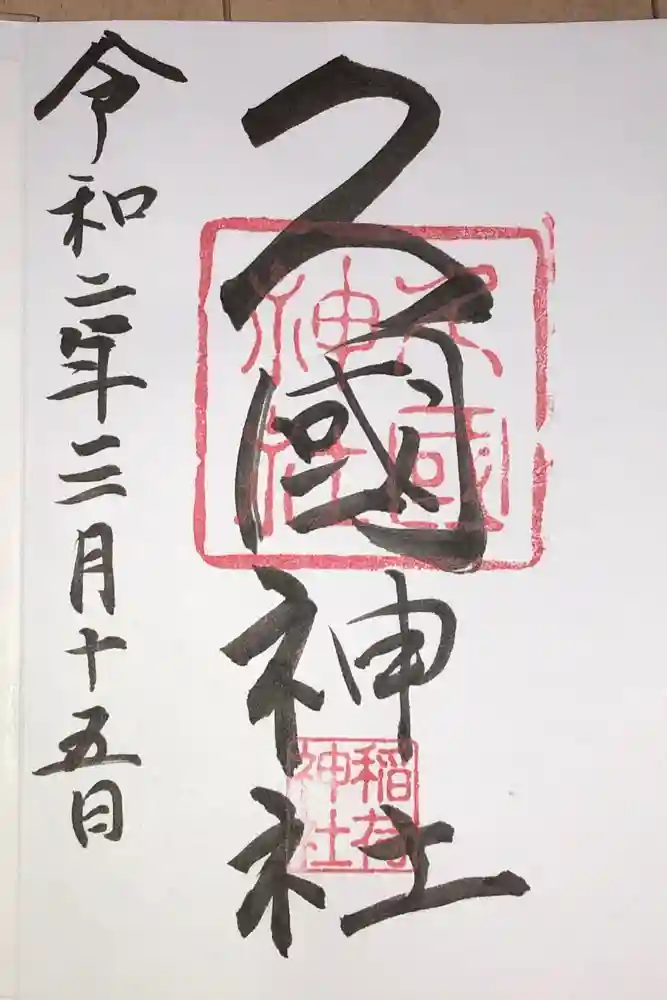 久國神社
久國
神社
稲荷
神社
令和二年三月十五日